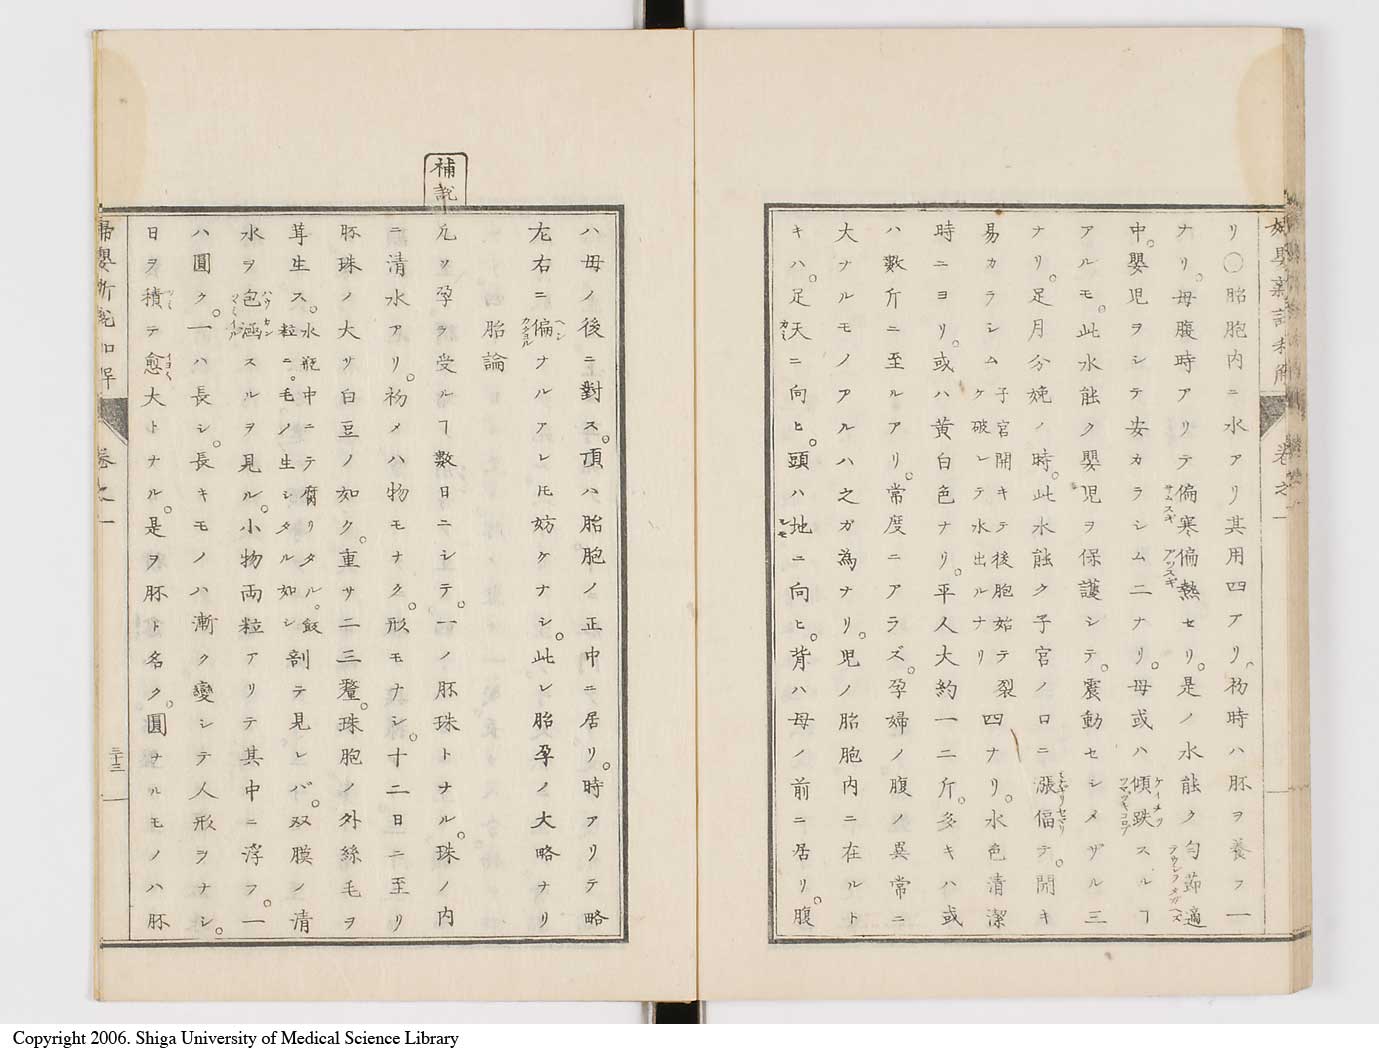 リ〇胎胞内ニ水アリ其用四アリ初時ハ胚ヲ養フ一
ナリ。母腹時アリテ偏寒偏熱セリ。是ノ水能ク勻節適
サムスギ
アツスギ
中。嬰児ヲシテ安カラシム二ナリ。母或ハ傾跌スルヿ
アルモ。此水能ク嬰児ヲ保護シテ。震動セシメザル三
ナリ。足月分娩ノ時。此水能ク子宮ノ口ニ漲偪テ。開キ
易カラシム
子宮開キテ後胞始テ裂
ケ破レテ水出ルナリ
四ナリ。水色清潔
時ニヨリ。或ハ黄白色ナリ。平人大約一二斤。多キハ或
ハ數斤ニ至ルアリ。常度ニアラズ。孕婦ノ腹ノ異常ニ
大ナルモノアルハ之ガ為ナリ。児ノ胎胞内ニ在ルト
キハ。足天ニ向ヒ。頭ハ地ニ向ヒ。背ハ母ノ前ニ居リ。腹
ハ母ノ後ニ對ス。頂ハ胎胞ノ正中ニ居リ。時アリテ略
左右ニ偏ナルアレ𪜈妨ケナシ。此レ胎孕ノ大略ナリ
ヘン
カタヨル
胎論
補説
凡ソ孕ヲ受ルヿ數日ニシテ。一ノ胚珠トナル。珠ノ内
ニ清水アリ。初メハ物モナク。形モナシ。十二日ニ至リ
胚珠ノ大サ白豆ノ如ク。重サ二三釐。珠胞ノ外絲毛ヲ
茸生ス。
水瓶中ニテ腐リタル。飯
粒ニ。毛ノ生シタル如シ
剖テ見レバ。双膜ノ清
水ヲ包涵スルヲ見ル。小物両粒アリテ其中ニ浮フ。一
ハ圓ク。一ハ長シ。長キモノハ漸ク變シテ人形ヲナシ。
日ヲ積テ愈大トナル。是ヲ胚ト名ク。圓ヲナルモノハ胚
イヨ〱
卷之一
三十三
Copyright 2006. Shiga University of Medical Science Library